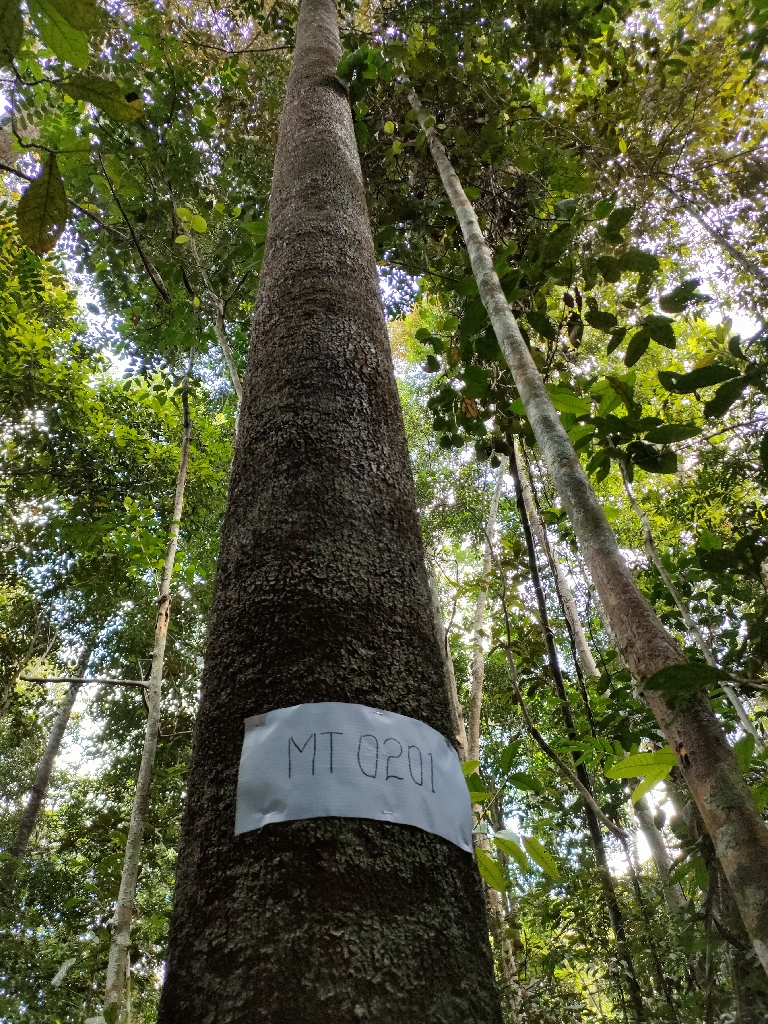 MT 0201